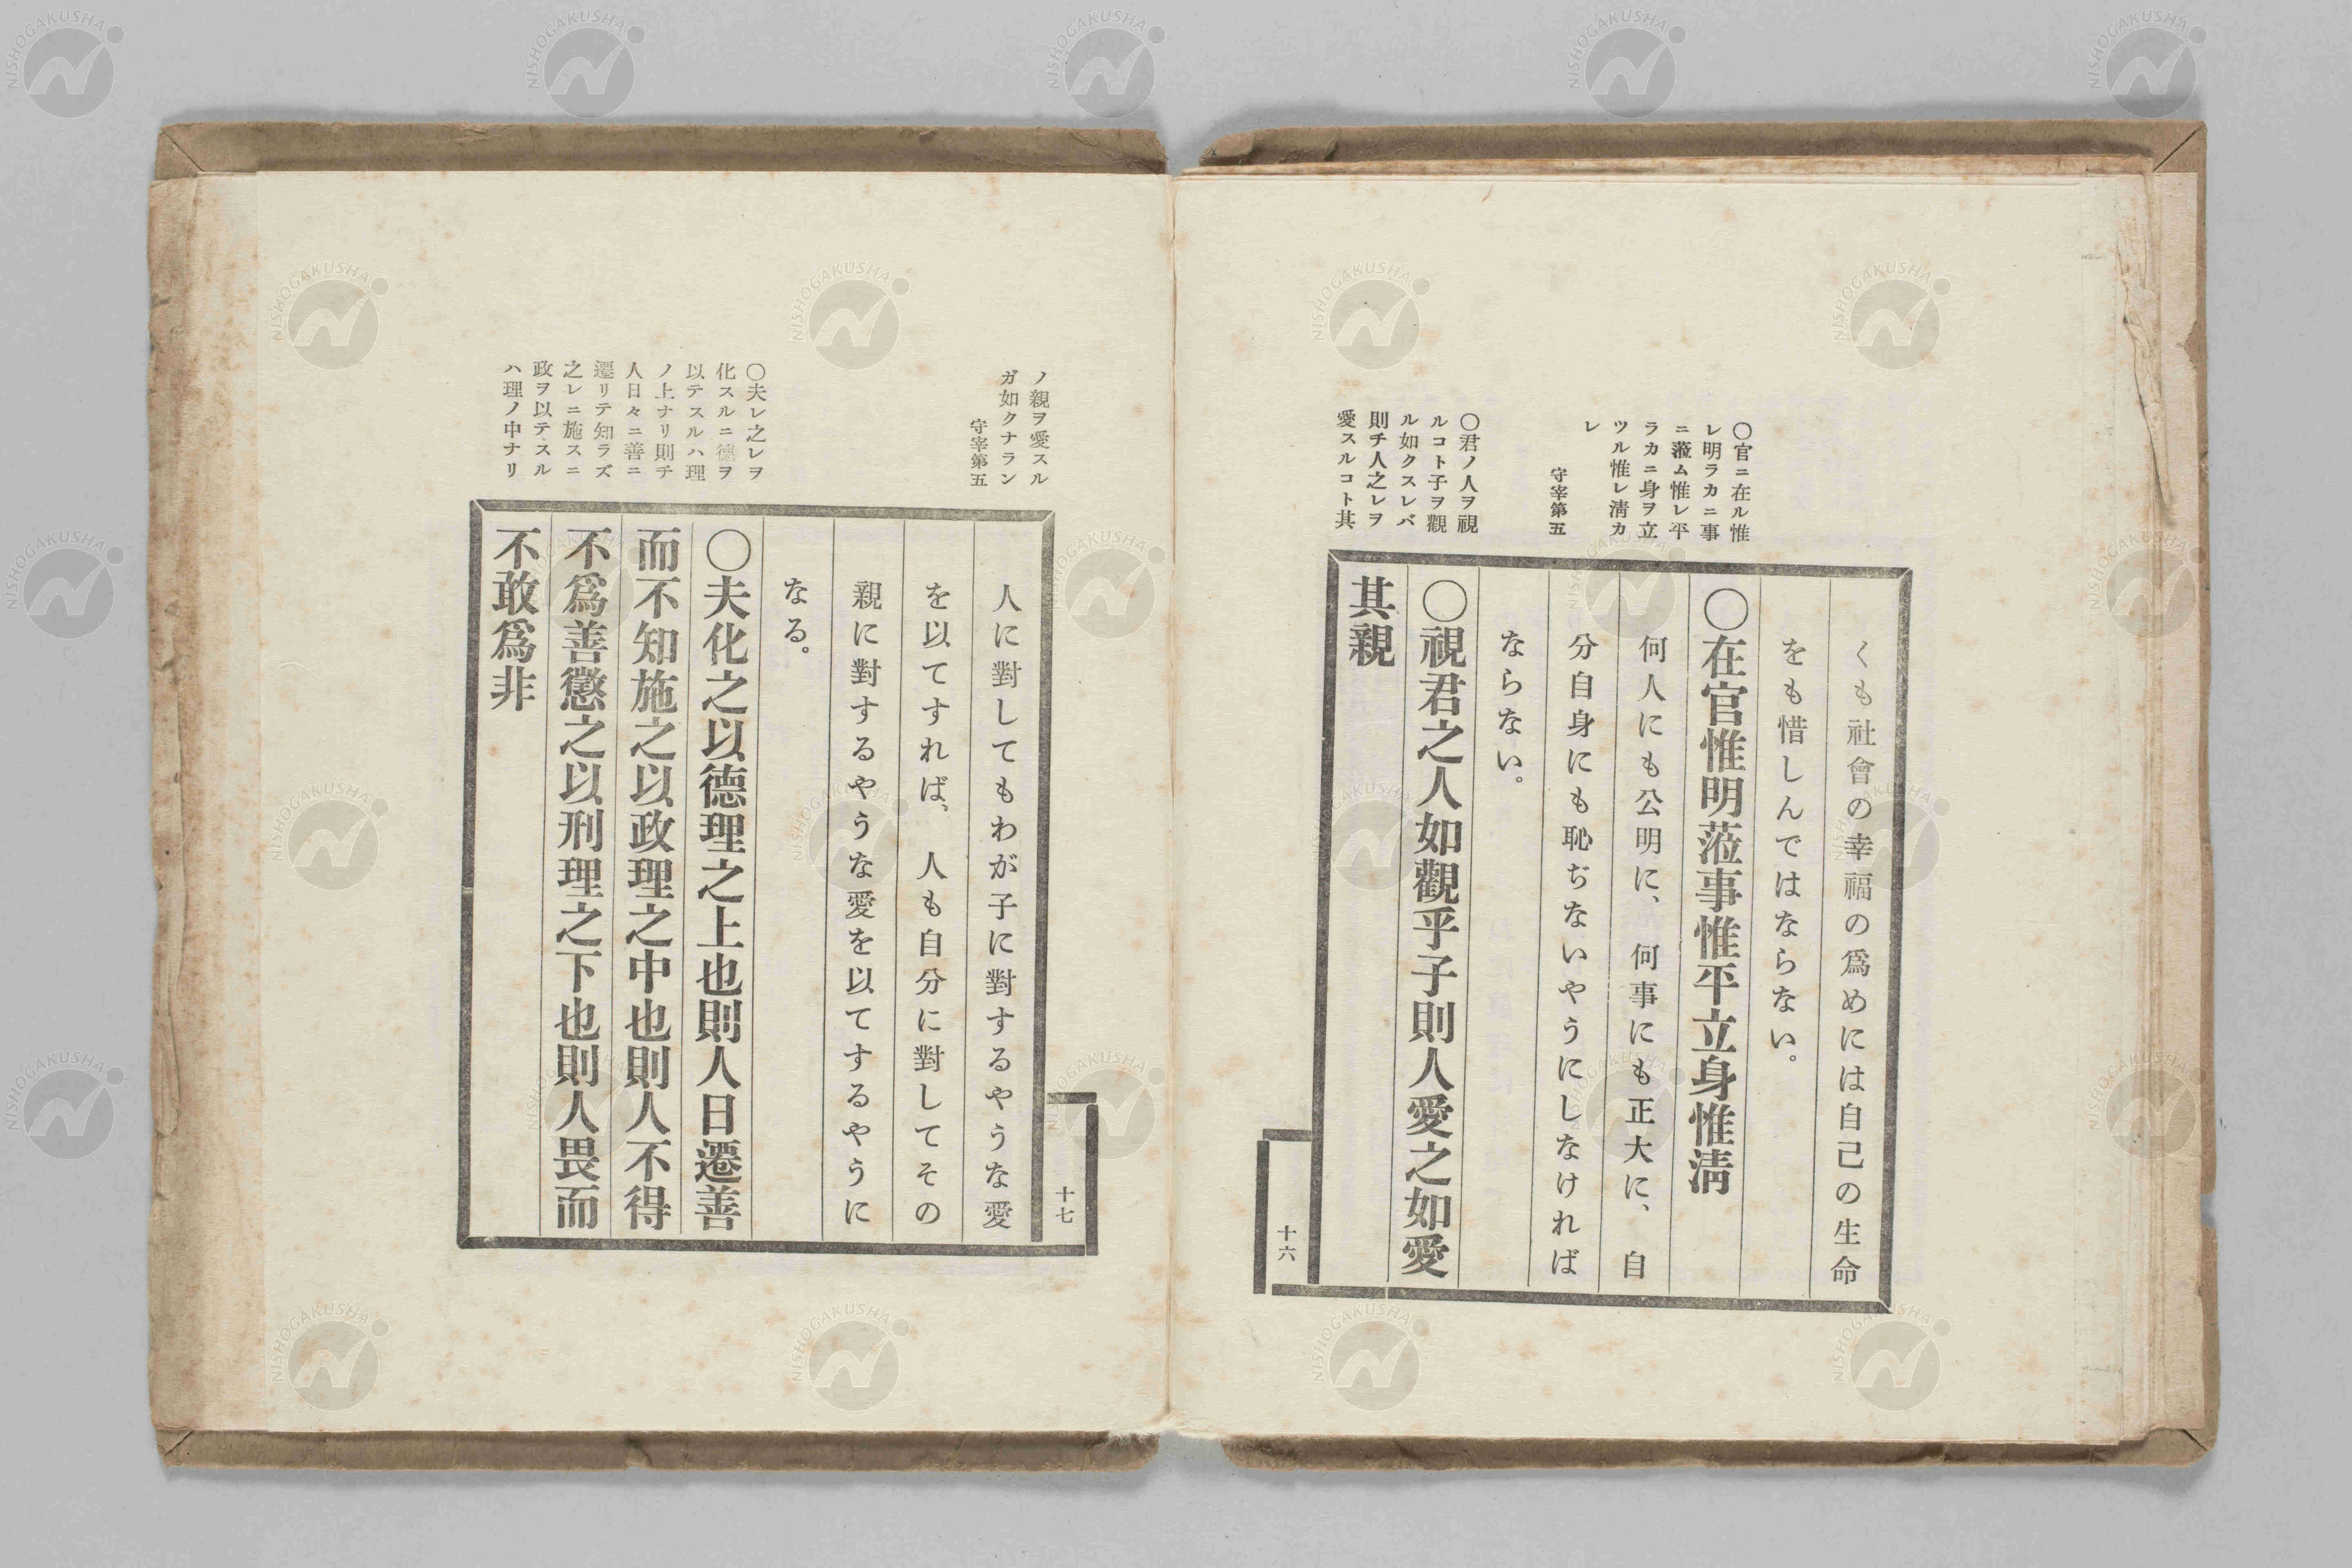 〇官ニ在ル惟
レ明ラカニ事
ニ蒞ム惟レ平
ラカニ身ヲ立
ツル惟レ淸カ
レ
守宰第五
〇君ノ人ヲ視
ルコト子ヲ觀
ル如クスレバ
則チ人之レヲ
愛スルコト其
くも社會の幸福の爲めには自己の生命
をも惜しんではならない。
〇在官惟明蒞事惟平立身惟淸
何人にも公明に、何事にも正大に、自
分自身にも恥ぢないやうにしなければ
ならない。
〇視君之人如觀乎子則人愛之如愛
其親
十六
ノ親ヲ愛スル
ガ如クナラン
守宰第五
〇夫レ之レヲ
化スルニ德ヲ
以テスルハ理
ノ上ナリ則チ
人日々ニ善ニ
遷リテ知ラズ
之レニ施スニ
政ヲ以テスル
ハ理ノ中ナリ
十七
人に對してもわが子に對するやうな愛
を以てすれば、人も自分に對してその
親に對するやうな愛を以てするやうに
なる。
〇夫化之以德理之上也則人日遷善
而不知施之以政理之中也則人不得
不爲善懲之以刑理之下也則人畏而
不敢爲非
NISHOGAKUSHA